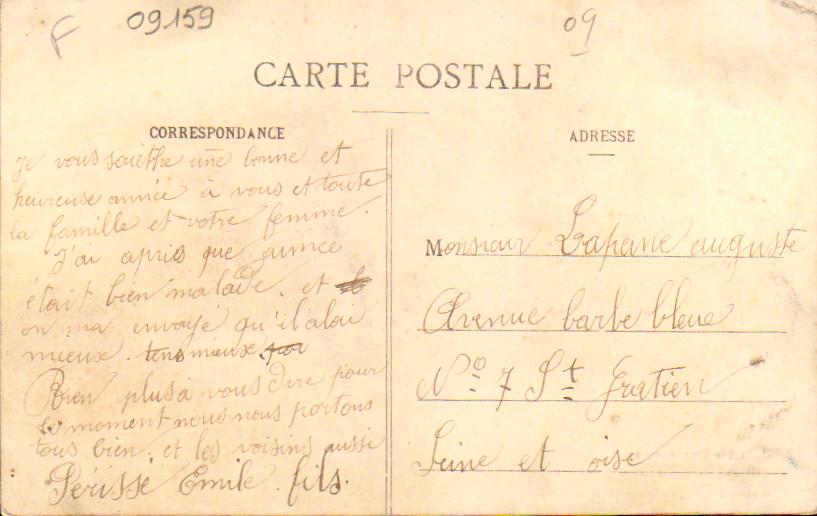 F 09.159
09
CARTE POSTALE
CORRESPONDANCE
je vous souethe une bonne et
heureuse année à vous et toute
la famille et votre femme.
J'ai apris que
était bien malade. et
on ma envoyé qu'il aloi
mieux. tens mieux
Rien plus a vous dire pour
le moment nous nous portons
tous bien. et les voisins aussi
Périssé Emile. fils.
ADRESSE
Monsieur Lapane auguste
Avenue barbe bleue
No 7 St Gratien
Seine et oise